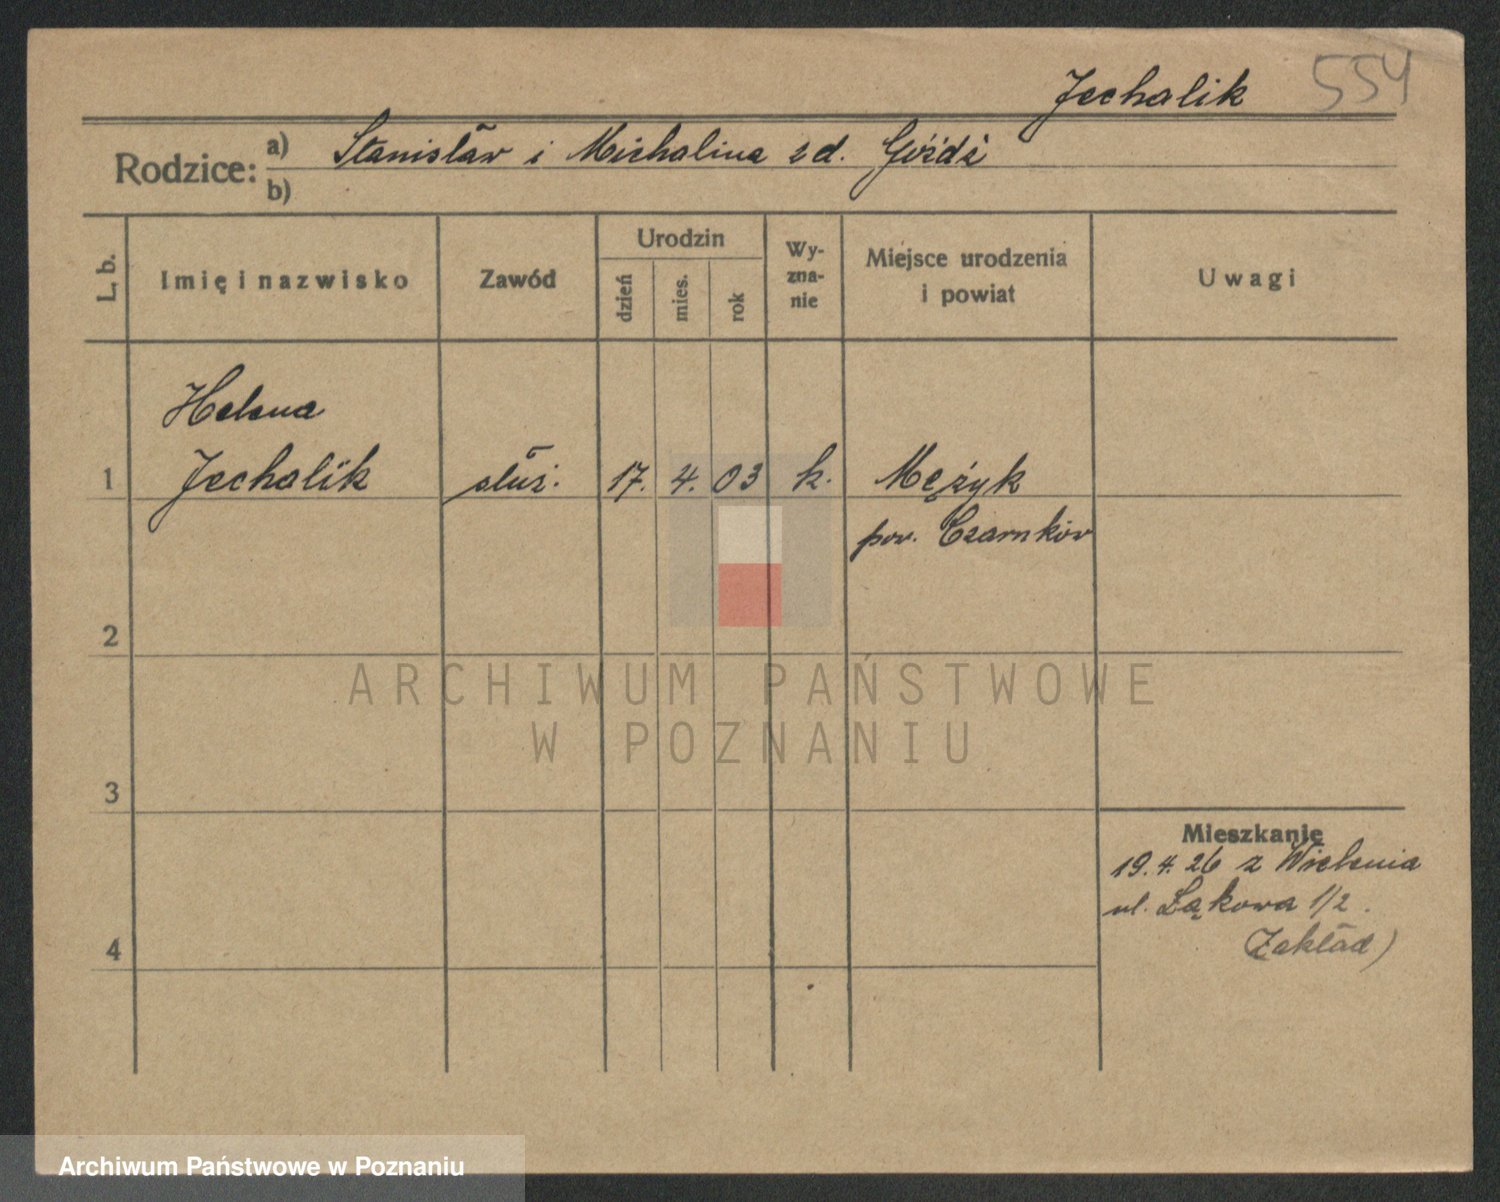 Jechalik 554
Rodzice: a) Stanisław i Michalina zd. Góźdź
b)
L. b.
Imię i nazwisko
Zawód
Urodzin
dzień
mies.
rok
Wy-
zna-
nie
Miejsce urodzenia
i powiat
Uwagi
Helena
1 Jechalik służ. 17. 4. 03 k. Mężyk
pow. Czarnków
2
ARCHIWUM PAŃSTWOWE
W POZNANIU
3
Mieszkanie
19. 4. 26 z Wielenia
ul. Łąkowa 1/2.
(Zakład)
4
Archiwum Państwowe w Poznaniu